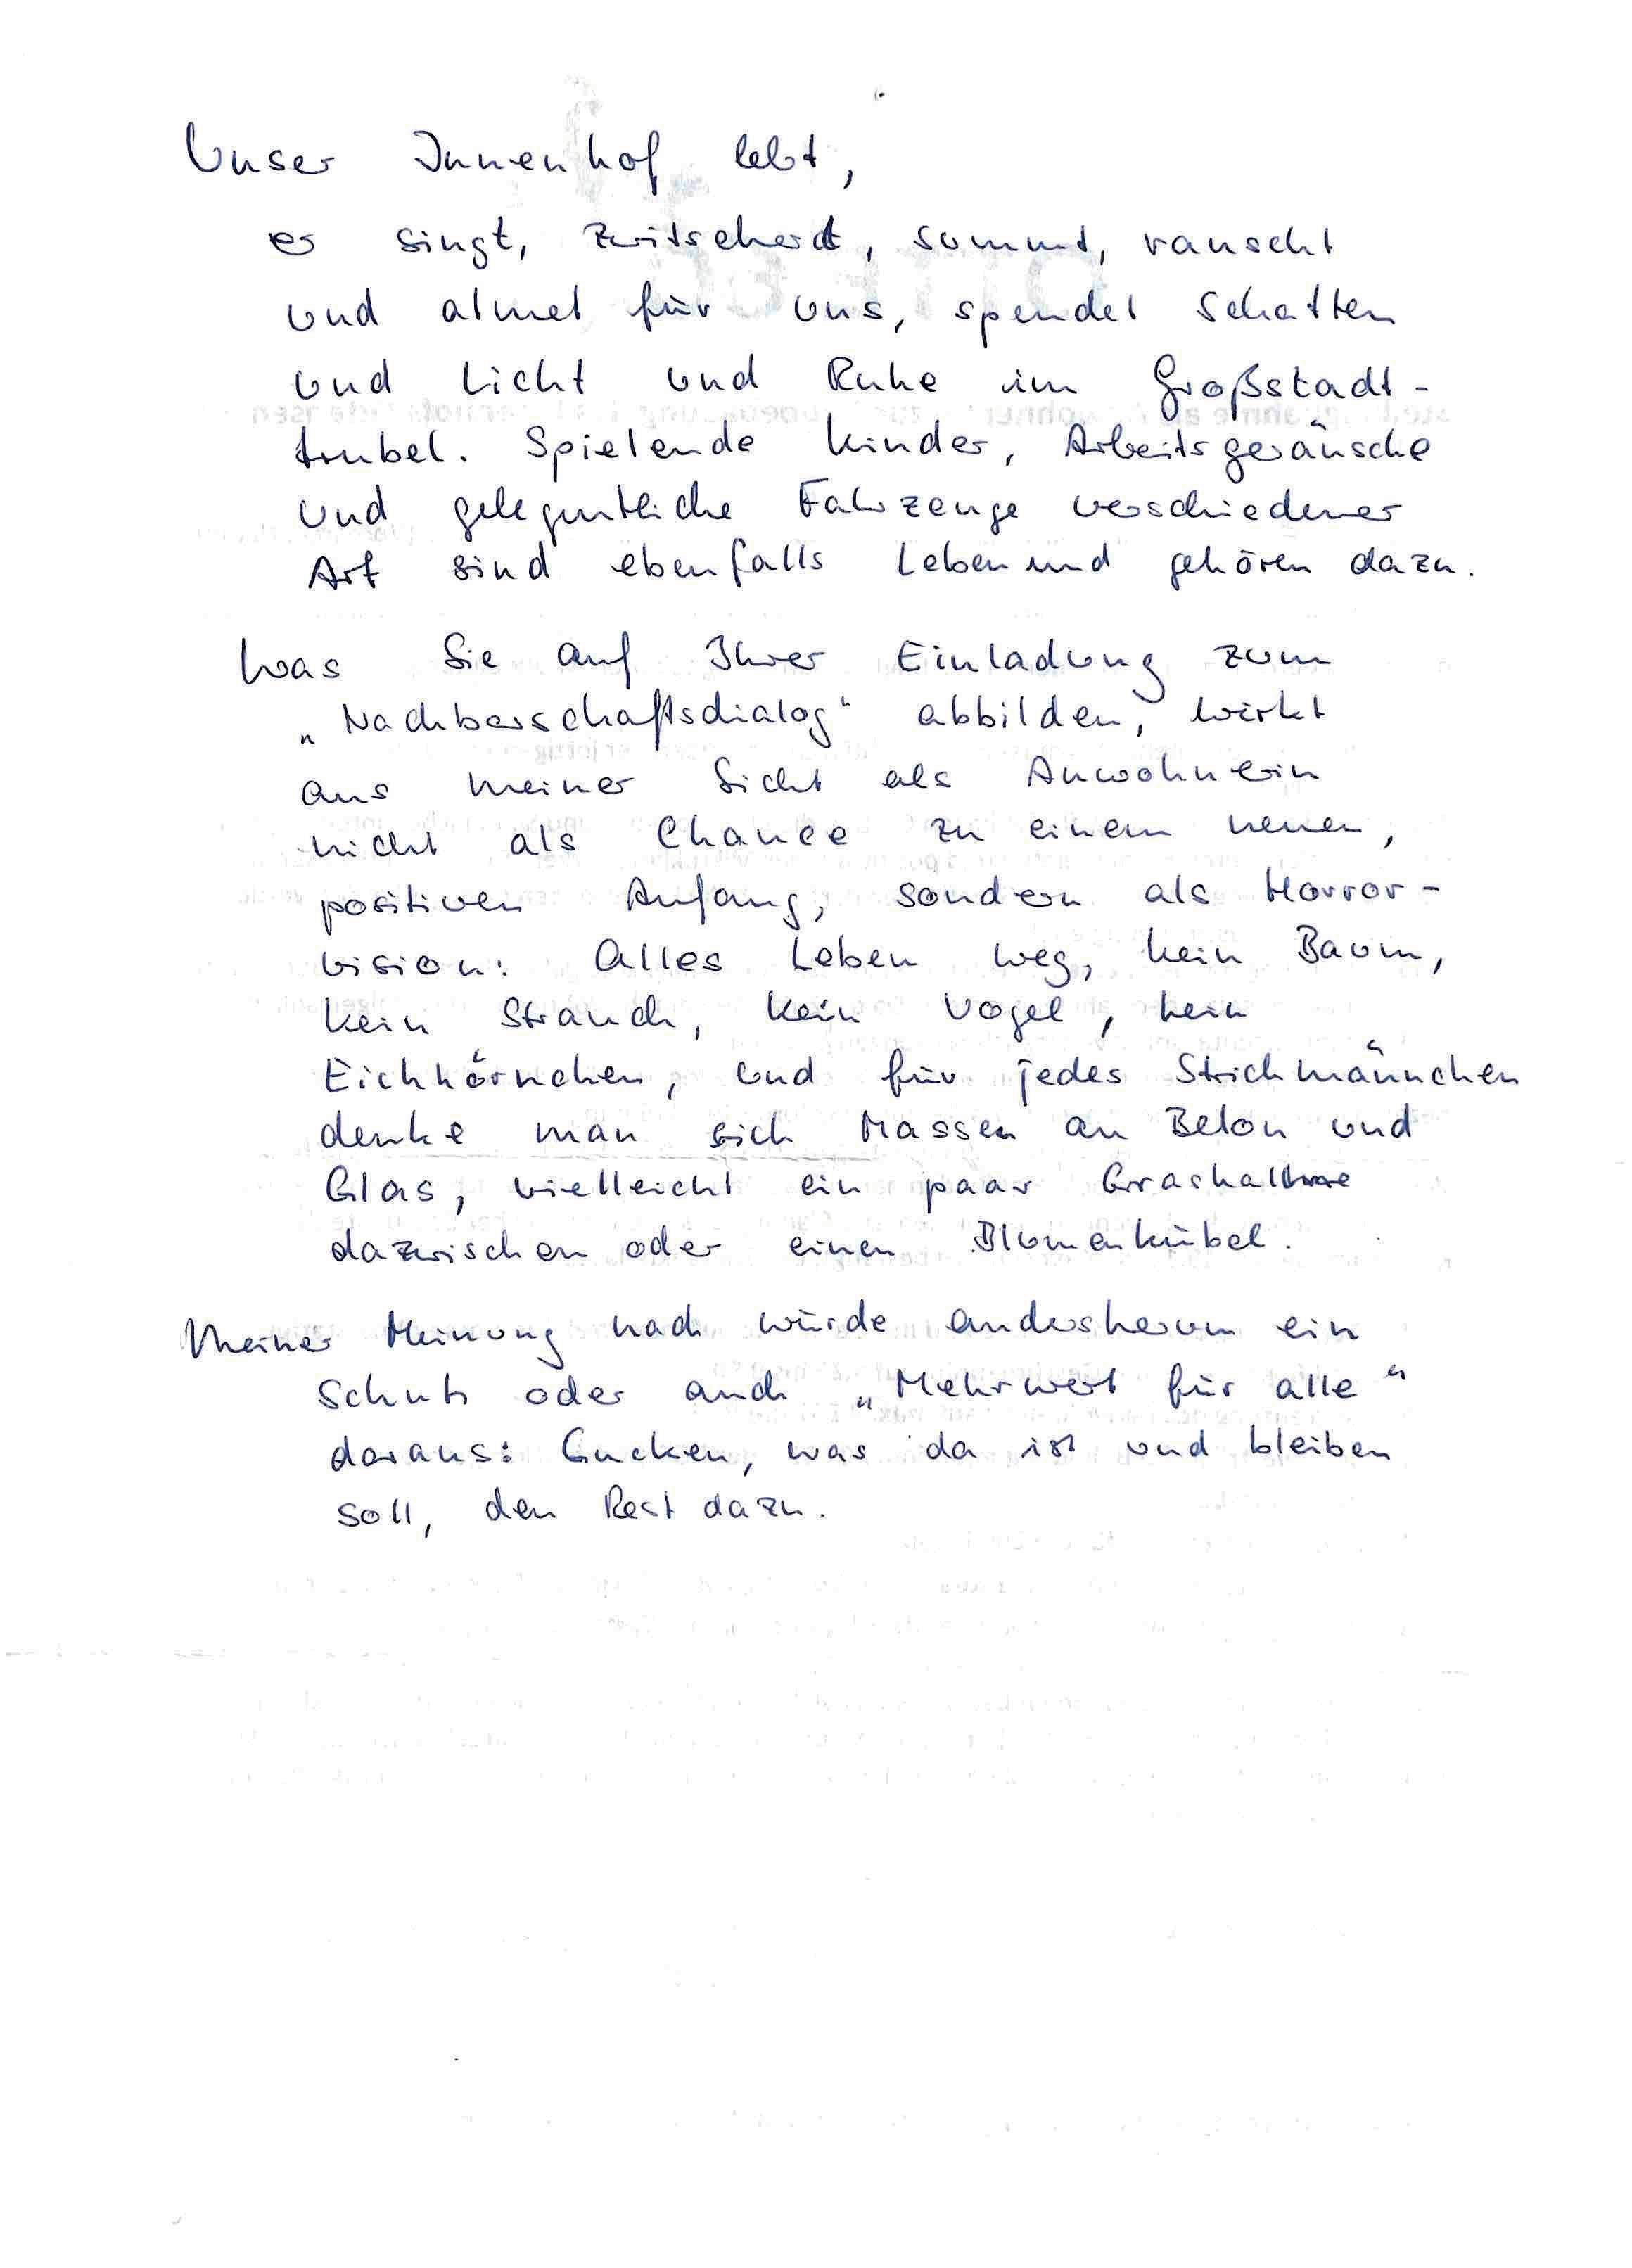 Unser Innenhof lebt,
er singt, zwitschert, summt, rauscht
und atmet für uns, spendet Schatten
und Licht und Ruhe im Großstadt-
trubel. Spielende Kinder, Arbeitsgeräusche
und gelegentliche Fahrzeuge verschiedener
Art sind ebenfalls Leben und gehören dazu.
Was Sie auf Ihrer Einladung zum
„Nachbarschaftsdialog“ abbilden, wirkt
aus meiner Sicht als Anwohnerin
nicht als Chance zu einem neuen,
positiven Anfang, sondern als Horror-
vision: Alles Leben weg, kein Baum,
kein Strauch, kein Vogel, kein
Eichhörnchen, und für jedes Strichmännchen
denke man sich Massen an Beton und
Glas, vielleicht ein paar Grashalme
dazwischen oder einen Blumenkübel.
Meiner Meinung nach würde andersherum ein
Schuh oder auch „Mehrwert für alle“
daraus: Gucken, was da ist und bleiben
soll, den Rest dazu.